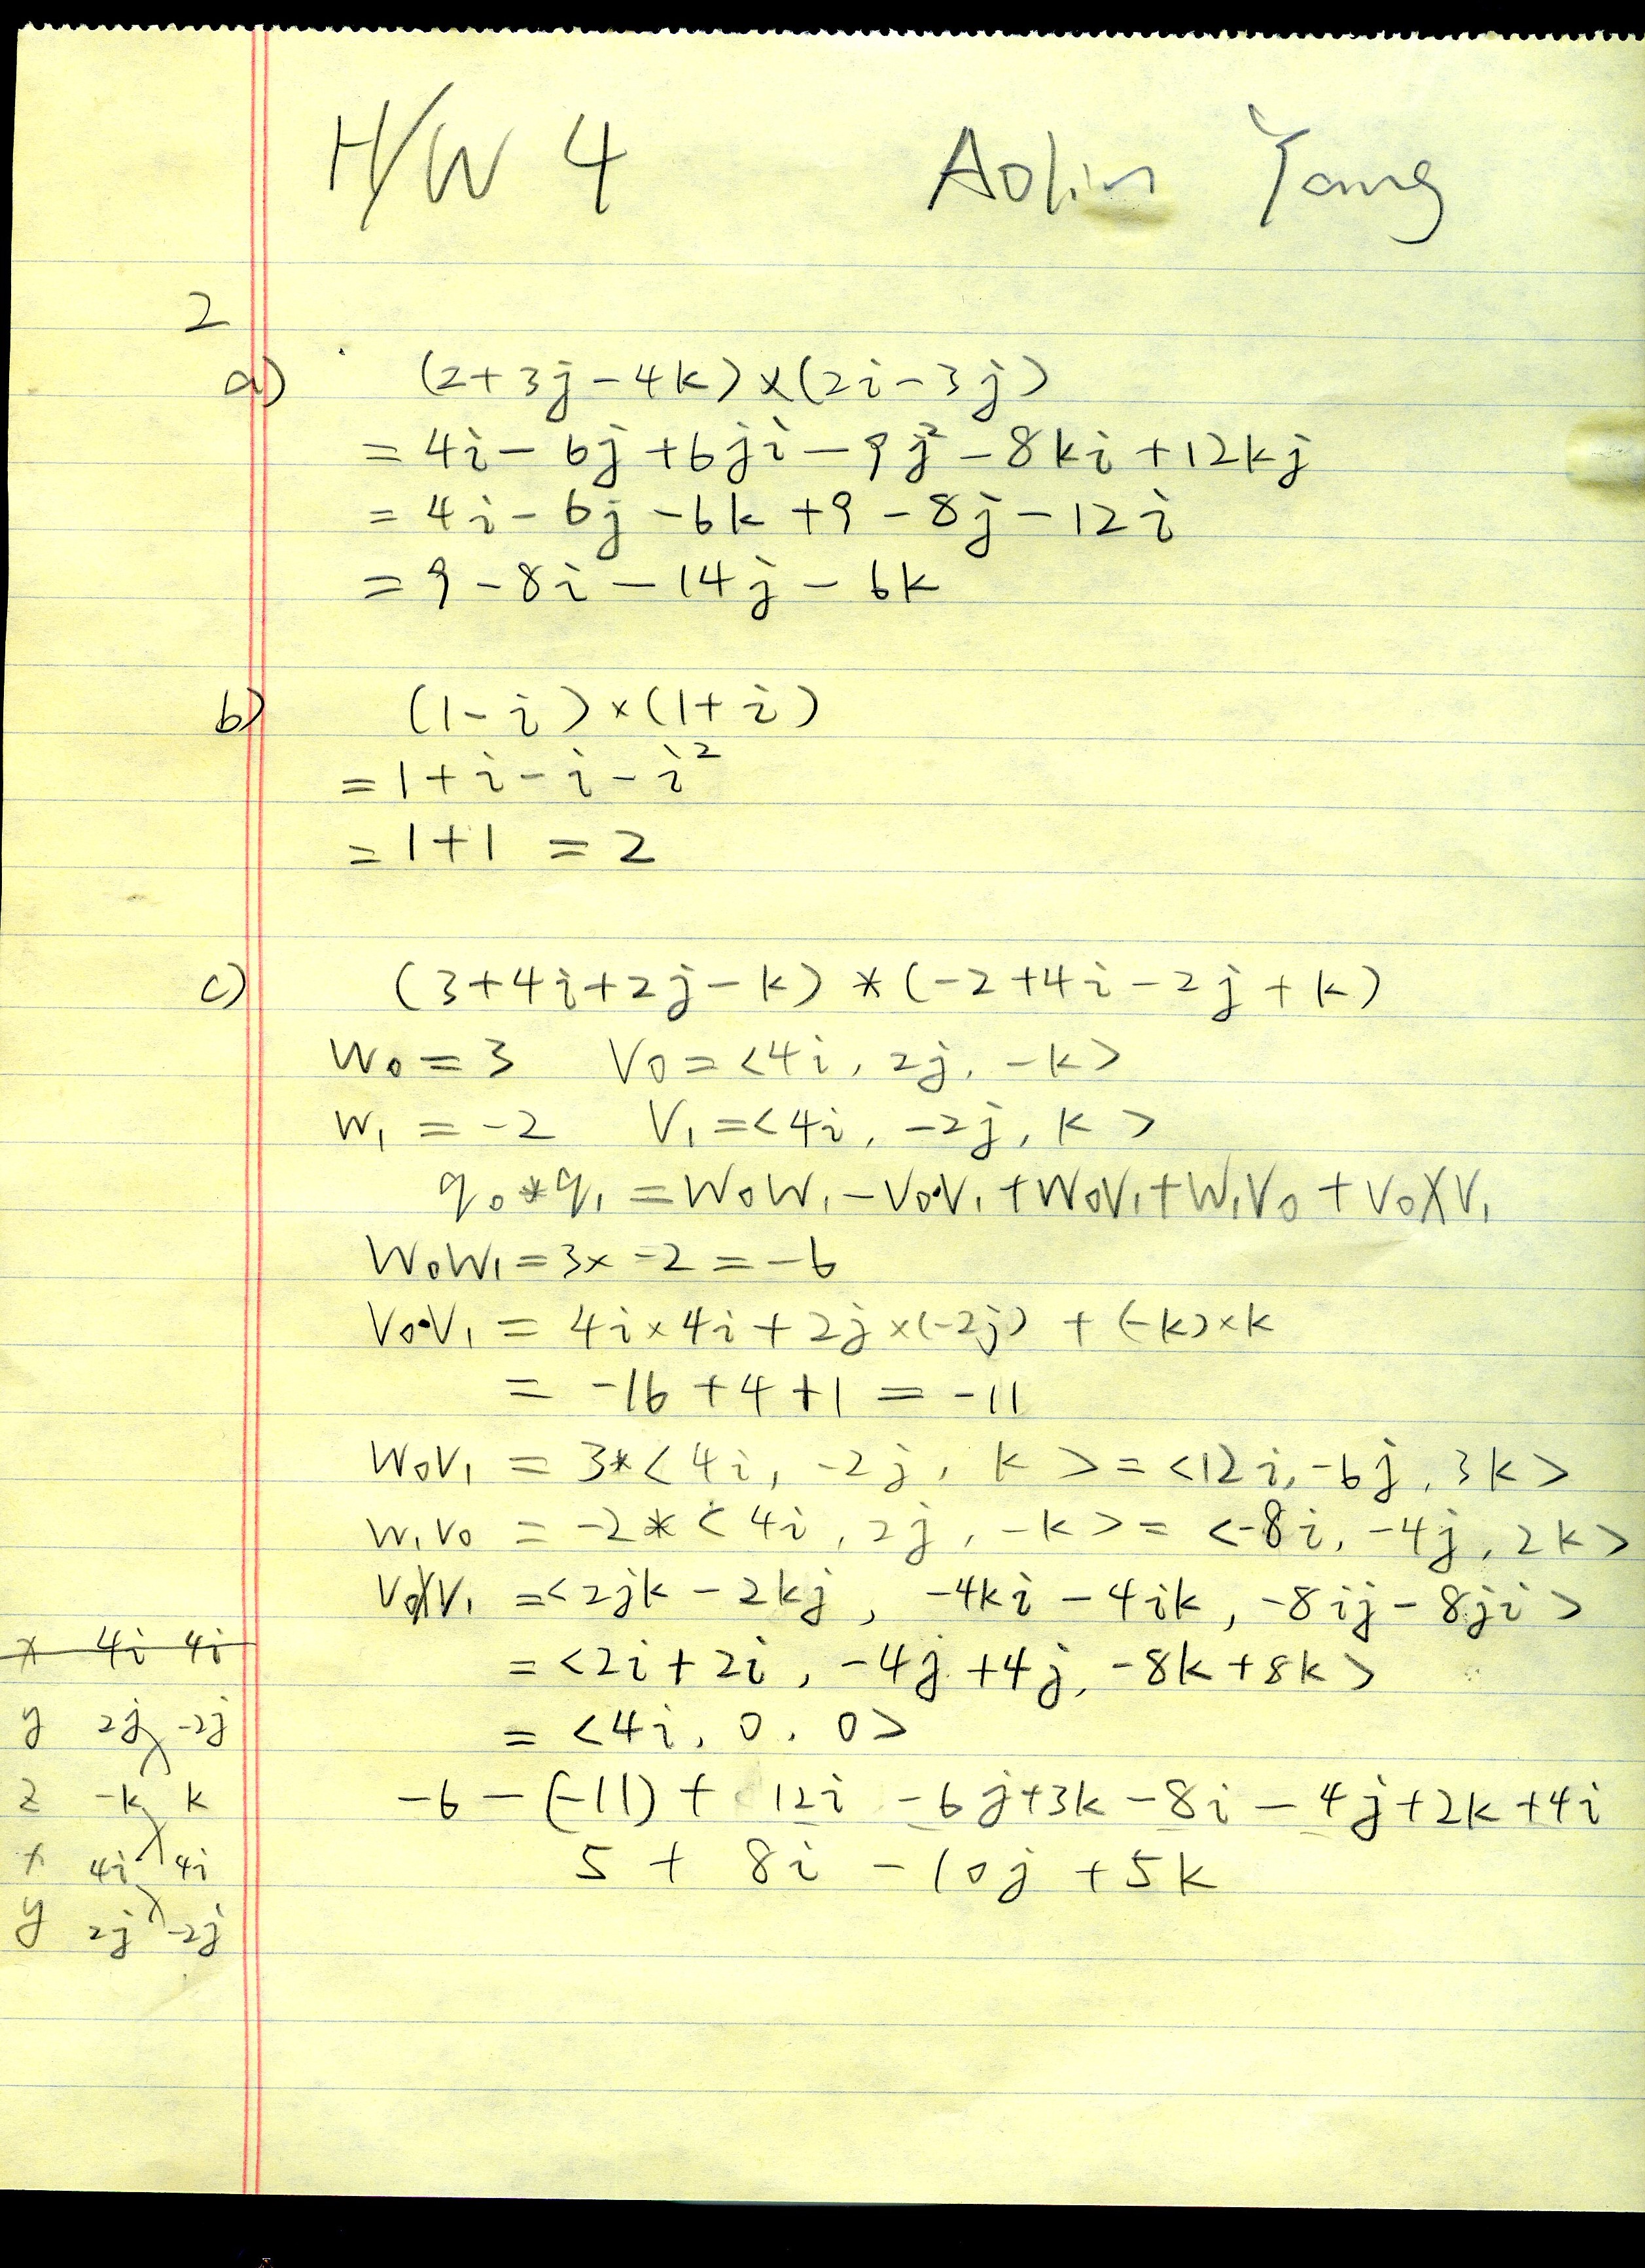 H/W 4 Aolin Yang
2
a) (2+3j-4k)×(2i-3j)
= 4i-6j+6ji-9j²-8ki+12kj
= 4i-6j-6k+9-8j-12i
= 9-8i-14j-6k
b) (1-i)×(1+i)
= 1+i-i-i²
= 1+1 = 2
c) (3+4i+2j-k)*(-2+4i-2j+k)
W₀ = 3 V₀ = <4i, 2j, -k>
W₁ = -2 V₁ = <4i, -2j, k>
q₀*q₁ = W₀W₁-V₀•V₁+W₀V₁+W₁V₀+V₀XV₁
W₀W₁ = 3x -2 = -6
V₀•V₁ = 4i×4i+2j×(-2j) + (-k)×k
= -16+4+1 = -11
W₀V₁ = 3*<4i, -2j, k> = <12i, -6j, 3k>
W₁V₀ = -2*<4i, 2j, -k> = <-8i, -4j, 2k>
V₀XV₁ = <2jk-2kj, -4ki-4ik, -8ij-8ji>
x 4i 4i
= <2i+2i, -4j+4j, -8k+8k>
y 2j -2j
= <4i, 0, 0>
z -k k
-6-(-11)+ 12i -6j+3k-8i-4j+2k+4i
x 4i 4i
5 + 8i -10j +5k
y 2j -2j